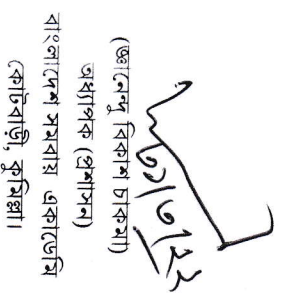 (জ্ঞানেন্দু বিকাশ চাকমা)
অধ্যাপক (প্রশাসন)
বাংলাদেশ সমবায় একাডেমি
কোটবাড়ী, কুমিল্লা।